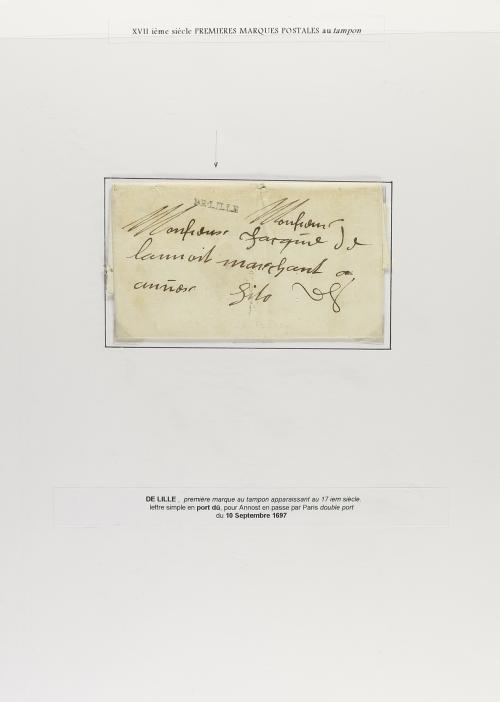 XVII ième siècle PREMIERES MARQUES POSTALES au tampon
DE·LILLE
Monsieur Monsieur
Jacque de
lannoit marchant a
DE LILLE , première marque au tampon apparaissant au 17 iem siècle.
lettre simple en port dû, pour Annost en passe par Paris double port
du 10 Septembre 1697